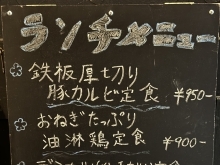 ランチメニュー
鉄板厚切り
豚カルビ定食 ¥950-
おねぎたっぷり
油淋鶏定食 ¥900-